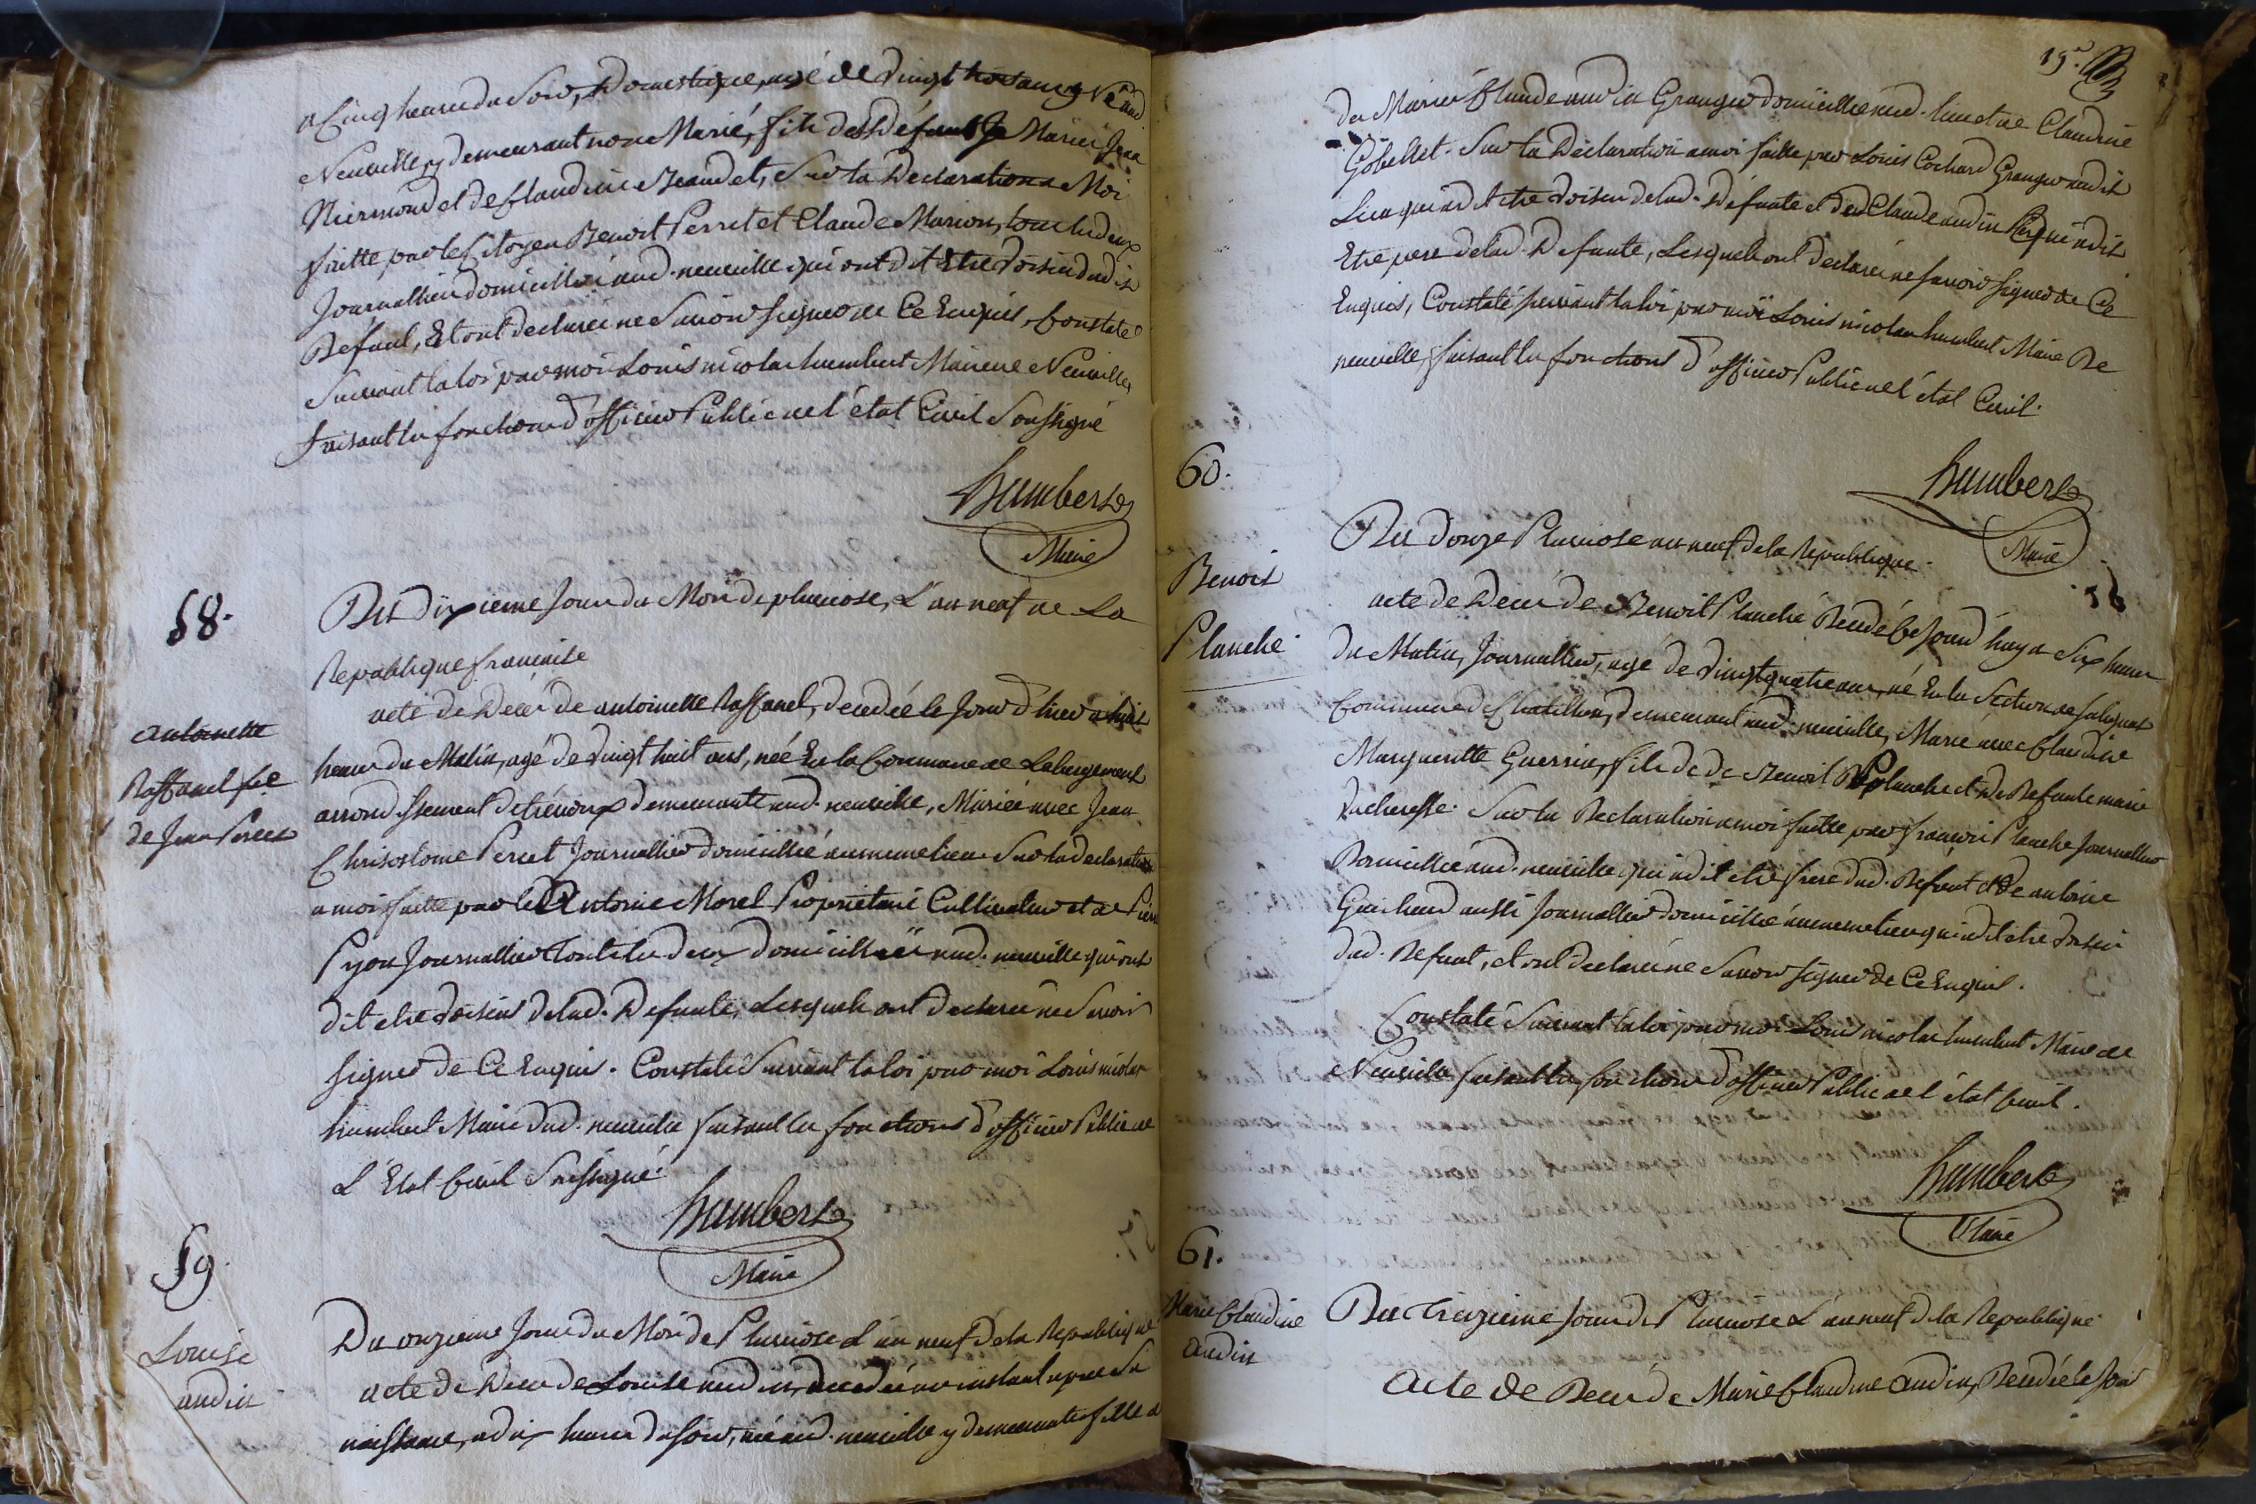 a Cinq heures du Soir, Domestique, agé de Vingt trois ans, Né aud
Neuville, y demeurant non Marié, fils des Défunts Marie Jean
Niermond et de Claudine Beaudet, Sur la Declaration a Moi
faitte par les Citoyen Benoit Perret et Claude Marion, tous les deux
Journalliers domicilliés aud. neuville qui ont dit Etre Voisin dudit
Défunt, Et ont declaré ne Savoir Signer de Ce Enquis, Constaté
Suivant la loi par moi Louis nicolas humbert Maire de Neuville,
faisant les fonctions d'officier Public de l'état Civil Soussigné
humbert
Maire
58.
Du Dixieme Jour du Mois de pluviose, L'an neuf de La
Republique francaise
antoinette
Raffanel fe
de Jean Perret
acte de Decès de antoinette Raffanel, decedée le Jour d'hier a huit
heures du Matin, agé de Vingt huit ans, née En la Commune de
arrondissement de trévoux demeurante aud. neuville, Mariée avec Jean
Chrisostome Perret Journallier domicillié au meme lieu Sur la declaration
a moi faitte par le Antoine Morel Propriétaire Cultivateur et de Pierre
Pyon Journallier tous les deux domicilliés aud. neuville qui ont
dit etre Voisins de lad. Defunte, Lesquels ont declaré ne Savoir
Signer de Ce Enquis. Constaté Suivant la loi par moi Louis nicolas
humbert Maire dud. neuville faisant les fonctions d'officier Public de
L'Etat Civil Soussigné
humbert
Maire
59.
Louise
audin
Du onzieme Jour du Mois de Pluviose L'an neuf de la Republique
acte de Decès de Louise audin, decedée un instant apres Sa
naissance, a dix heures du Soir, née aud. neuville y demeurante fille a
19.
du Marié Claude audin Granger domicillié aud. lieu et de Claudine
Gobellet. Sur la Déclaration a moi faitte par Louis Cochard Granger audit
Lieu qui a dit etre Voisin de lad. Défunte et de Claude audin qui a dit
Etre pere de lad. Defunte, Lesquels ont declaré ne Savoir Signer de Ce
Enquis, Constaté suivant la loi par moi Louis nicolas humbert Maire De
neuville, faisant les fonctions d'officier Public de l'état Civil.
humbert
Maire
60.
Benoit
Planche
Du Douze Pluviose an neuf de la Republique.
acte de Decès de Benoit Planche Decedé Ce Jourd'huy a Six heures
du Matin, Journallier, agé de Vingt quatre ans, né En la Section de
Commune de Chatillon, demeurant aud. neuville, Marié avec Claudine
Marguerite Guerrin, fils de Benoit Planche et de Defunte marie
Sur la Declaration a moi faitte par francois Planche Journallier
Domicillié aud. neuville qui a dit etre frere dud. Defunt et de antoine
Guichard aussi Journallier domicillié au meme lieu qui a dit etre Voisin
dud. Defunt, et ont declaré ne Savoir Signer de Ce Enquis.
Constaté Suivant la loi par moi Louis nicolas humbert Maire de
Neuville faisant les fonctions d'officier Public de l'état Civil.
humbert
Maire
61.
Marie Claudine
audin
Du Treizieme Jour de Pluviose L'an neuf de la Republique
Acte de Decès de Marie Claudine audin, Decedée le Jour